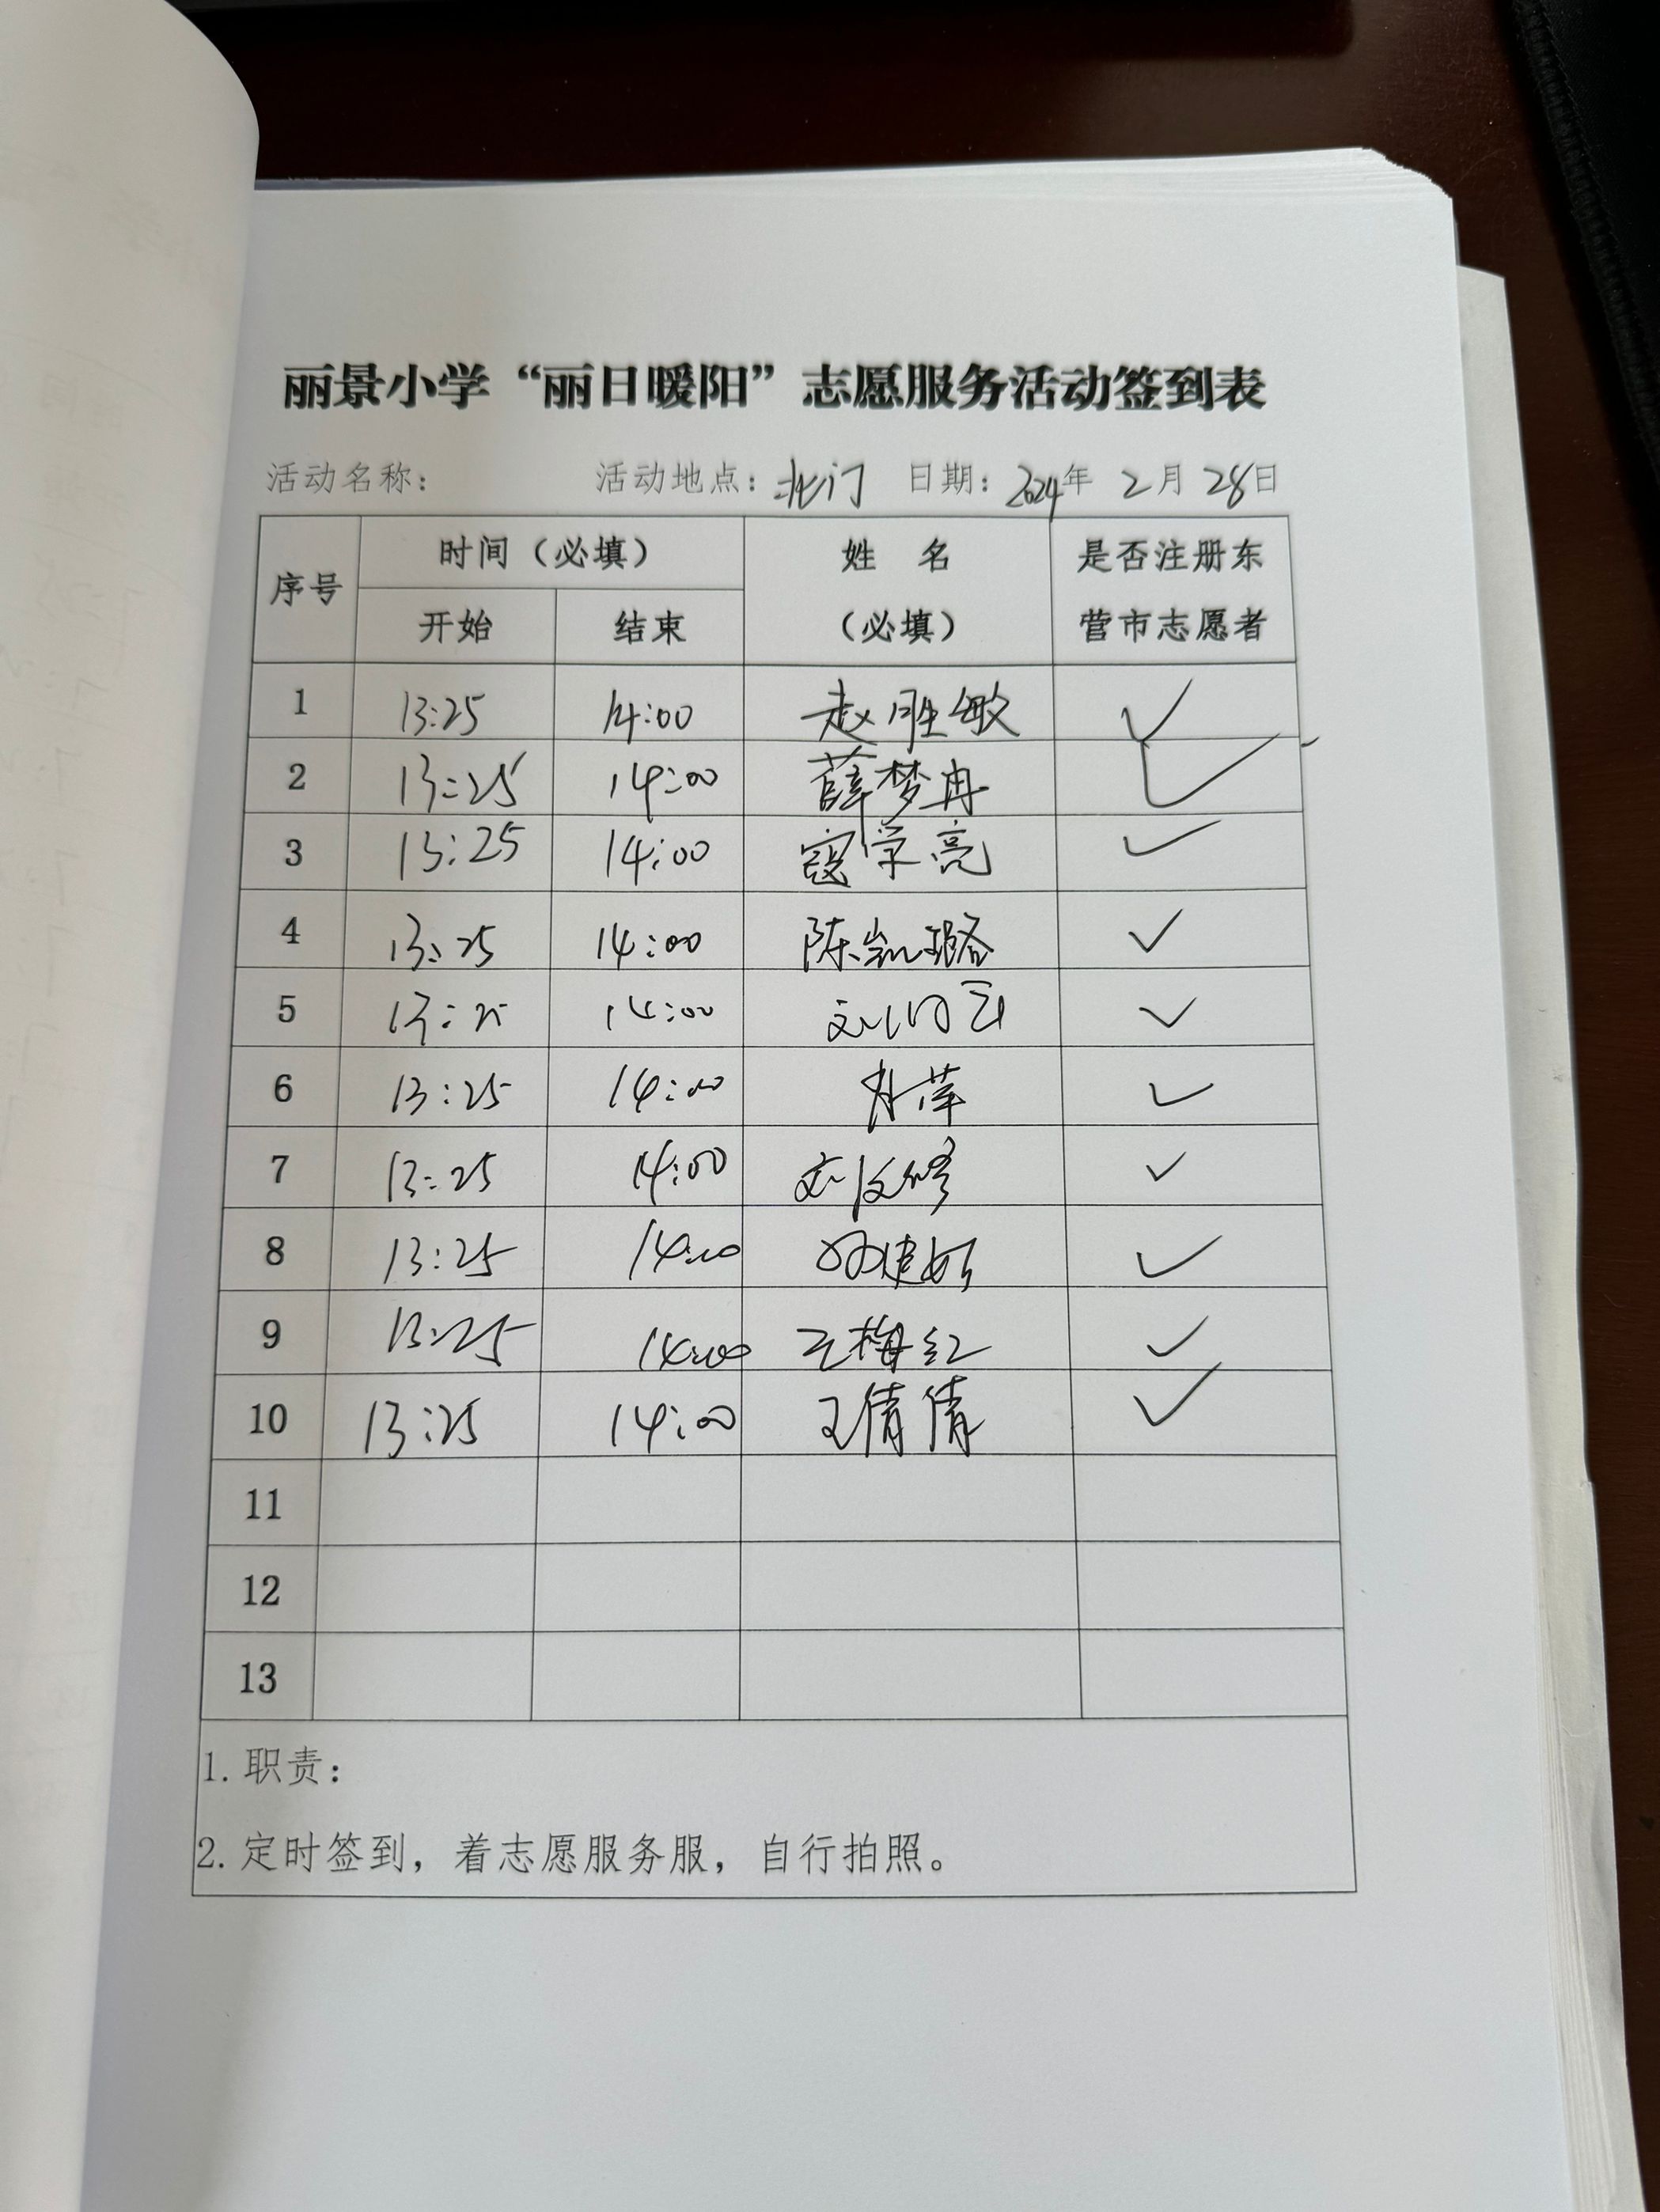 丽景小学“丽日暖阳”志愿服务活动签到表
活动名称： 活动地点：北门 日期：2024年 2月 28日
序号 时间（必填） 姓 名（必填） 是否注册东营市志愿者
开始 结束
1 13:25 14:00 赵胜敏 ✓
2 13:25 14:00 薛梦冉 ✓
3 13:25 14:00 寇学亮 ✓
4 13:25 14:00 陈凯璐 ✓
5 13:25 14:00 ✓
6 13:25 14:00 ✓
7 13:25 14:00 ✓
8 13:25 14:00 ✓
9 13:25 14:00 王梅红 ✓
10 13:25 14:00 王倩倩 ✓
11
12
13
1. 职责：
2. 定时签到，着志愿服务服，自行拍照。